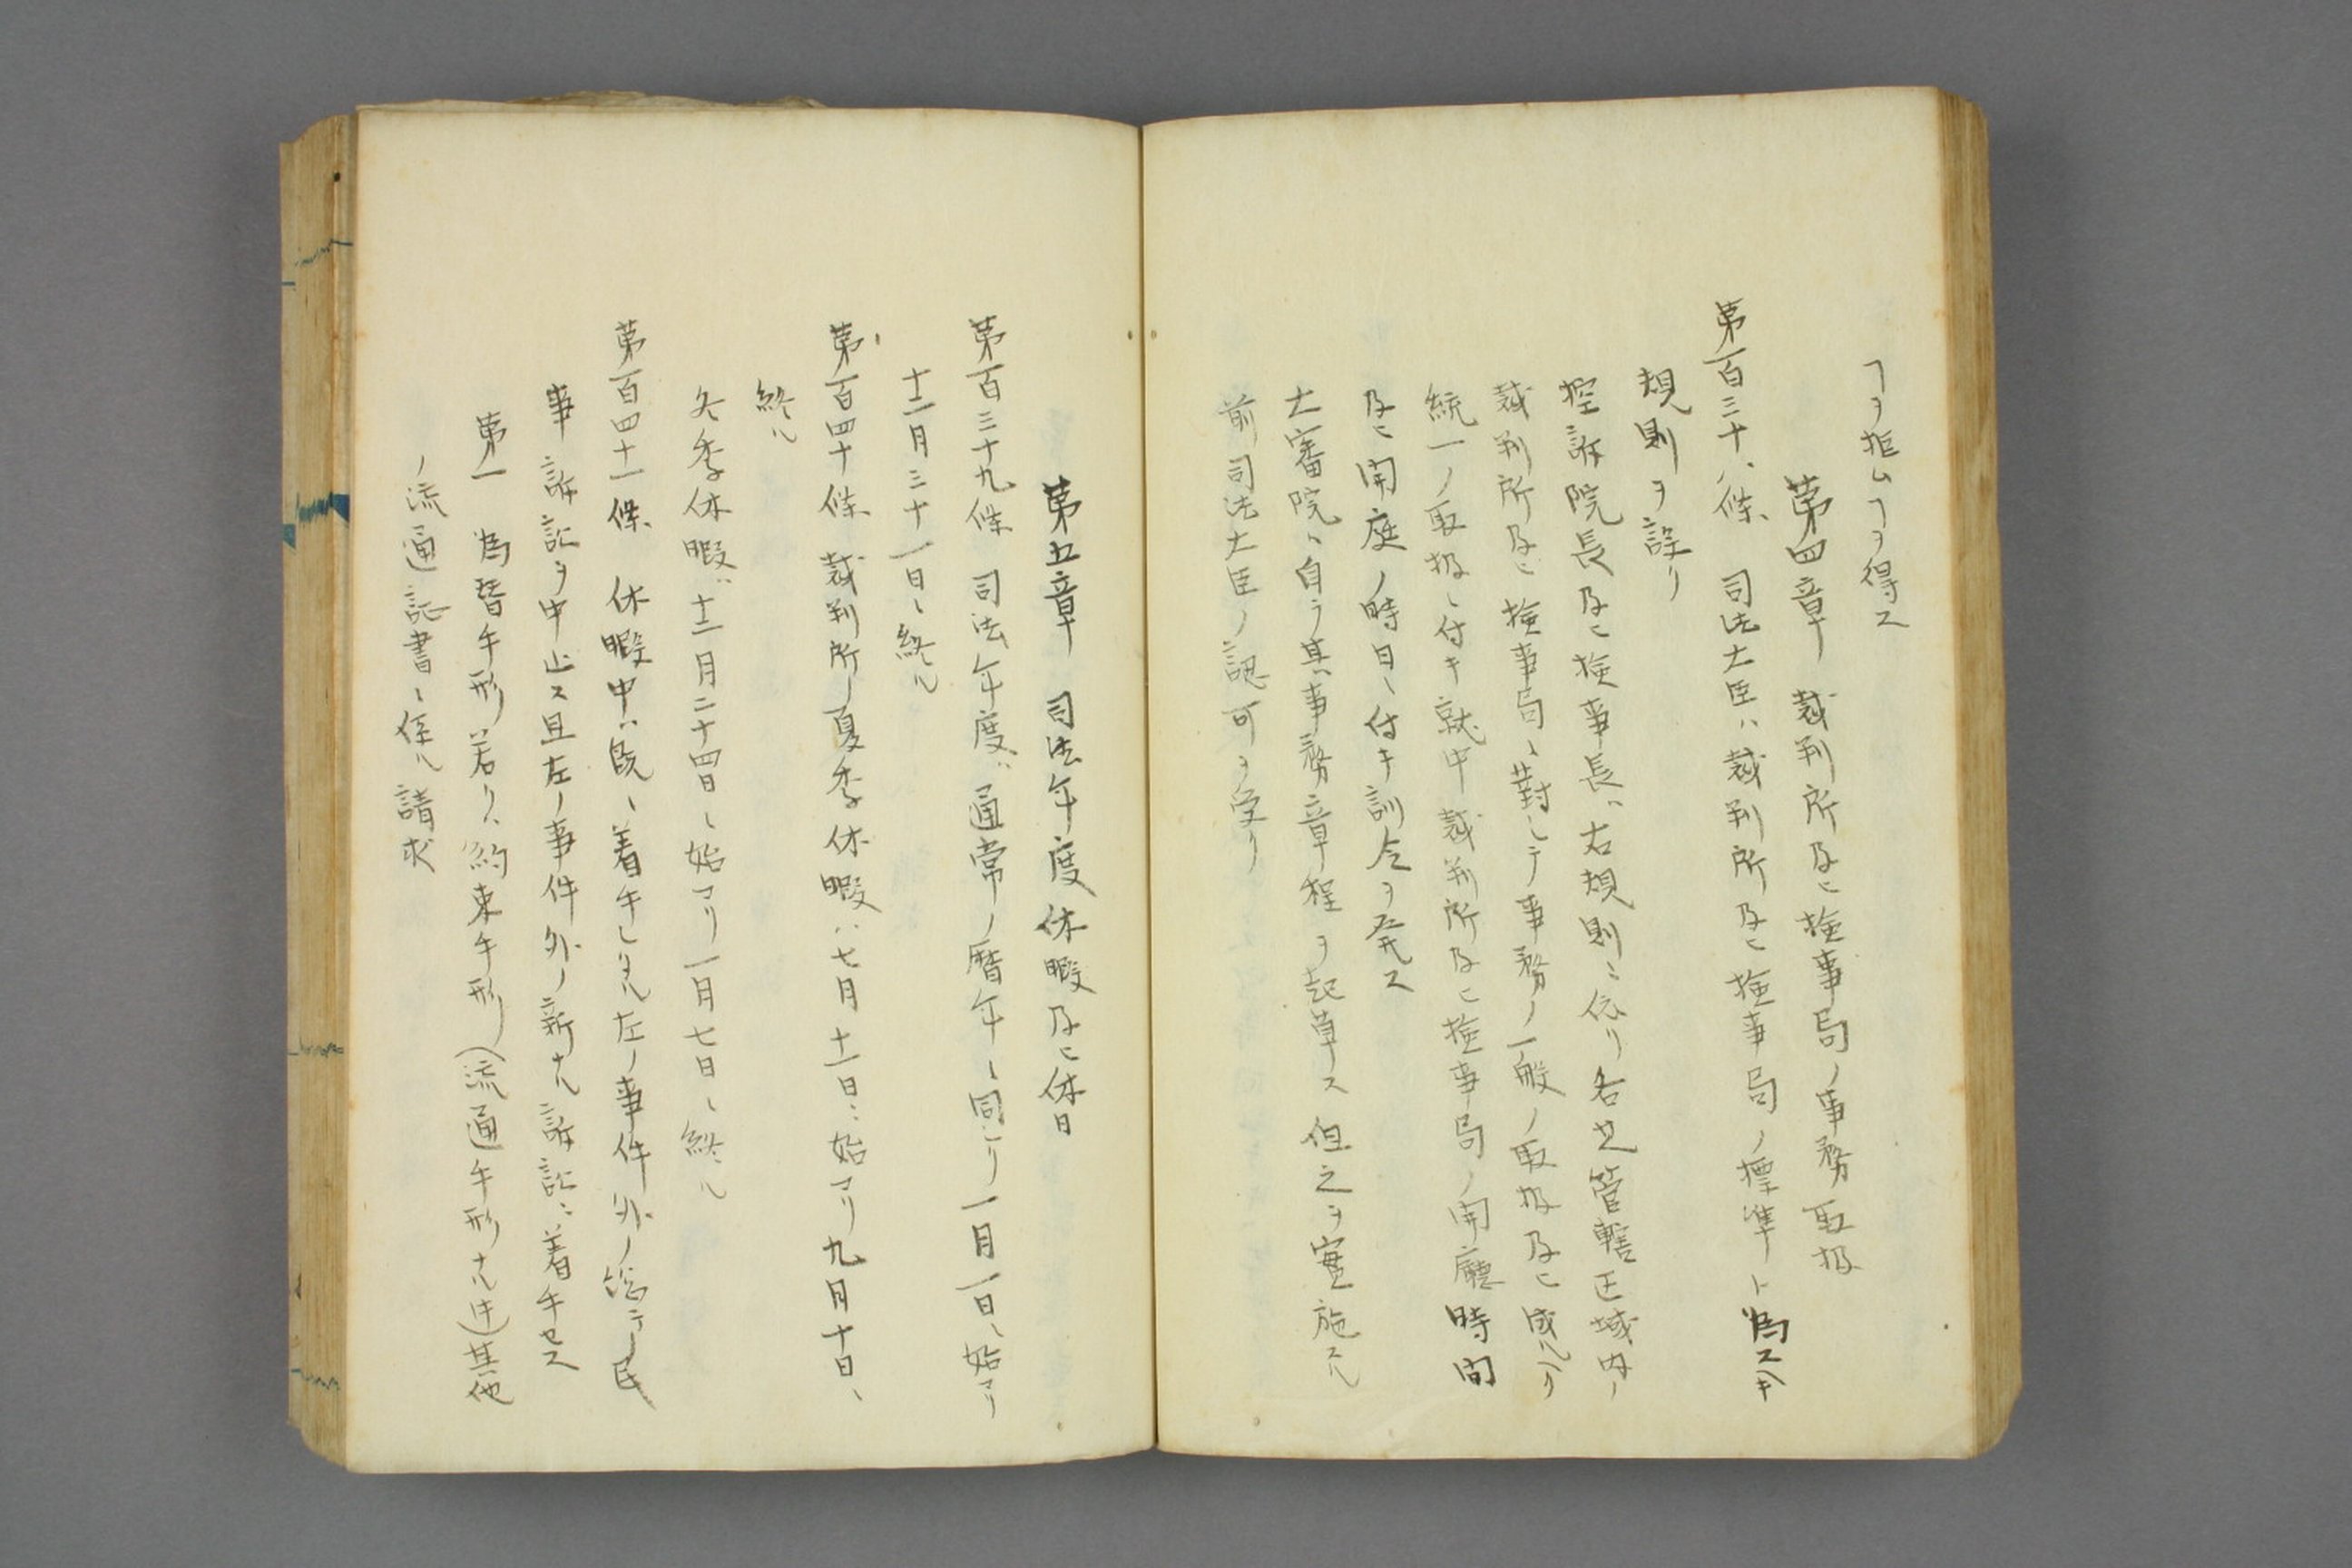 ヿヲ拒ムヿヲ得ス
第四章 裁判所及ヒ検事局ノ事務取扱
第百三十八條 司法大臣ハ裁判所及ヒ検事局ノ標準ト為スヘキ
規則ヲ設ク
控訴院長及ヒ検事長ハ右規則ニ依リ各其管轄区域内ノ
裁判所及ヒ検事局ニ對シテ事務ノ一般ノ取扱及ヒ成ルヘク
統一ノ取扱ニ付キ就中裁判所及ヒ検事局ノ開廳時間
及ヒ開庭ノ時日ニ付キ訓令ヲ発ス
大審院ハ自ラ其事務章程ヲ起草ス但之ヲ實施スル
前司法大臣ノ認可ヲ受ク
第五章 司法年度休暇及ヒ休日
第百三十九條 司法年度ハ通常ノ暦年ニ同シク一月一日ニ始マリ
十二月三十一日ニ終ル
第百四十條 裁判所ノ夏季休暇ハ七月十一日ニ始マリ九月十日ニ
終ル
冬季休暇ハ十二月二十四日ニ始マリ一月七日ニ終ル
第百四十一條 休暇中ハ既ニ着手シタル左ノ事件外ノ総テノ民
事訴訟ヲ中止ス且左ノ事件外ノ新ナル訴訟ニ着手セス
第一 為替手形若クハ約束手形(流通手形ナル時)其他
ノ流通証書ニ係ル請求